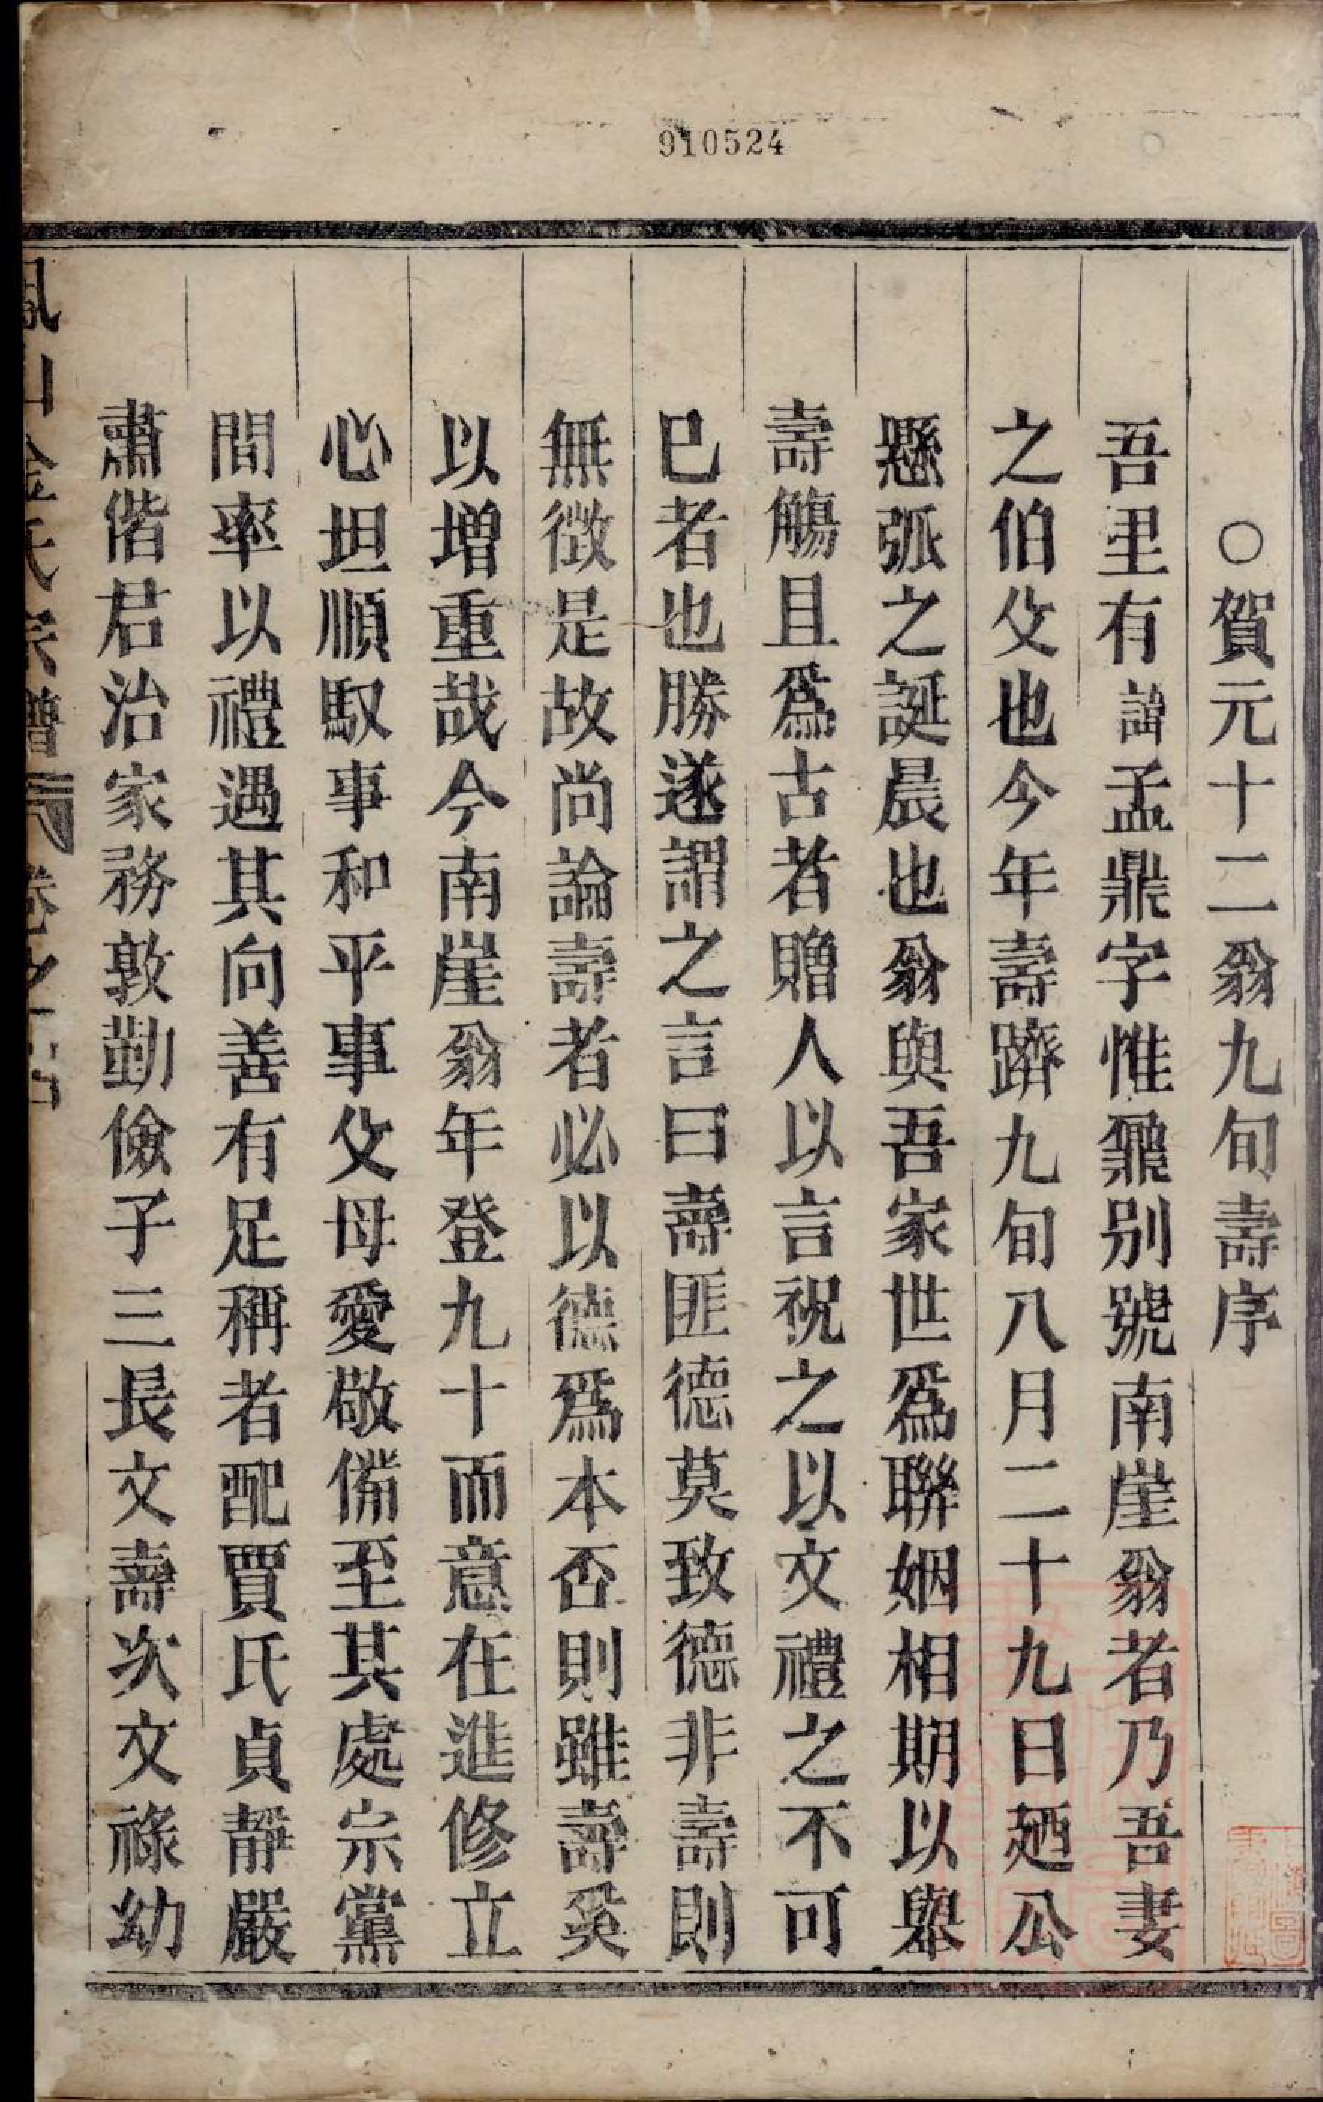 910524
○賀元十二翁九旬壽序
吾里有諱孟鼎字惟鼐别號南崖翁者乃吾妻
之伯父也今年壽躋九旬八月二十九日廼公
懸弧之誕晨也翁與吾家世爲聯姻相期以舉
壽觴且爲古者贈人以言祝之以文禮之不可
已者也勝遂謂之言曰壽匪德莫致德非壽則
無徵是故尚論壽者必以德爲本否則雖壽奚
以增重哉今南崖翁年登九十而意在進修立
心坦順馭事和平事父母愛敬備至其處宗黨
間率以禮遇其向善有足稱者配賈氏貞靜嚴
肅偕君治家務敦勤儉子三長文壽次文祿幼
鳳山金氏宗譜 卷之